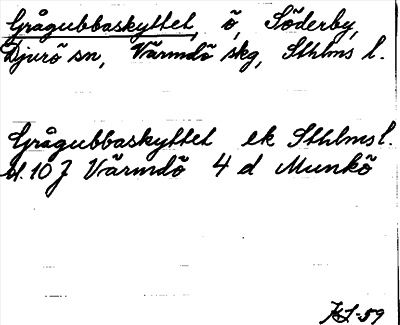 Grågubbaskyttet, ö, Söderby,
Djurö sn, Värmdö skg, Sthlms l.
Grågubbaskyttet ek Sthlms l.
bl. 10 J Värmdö 4 d Munkö
-59